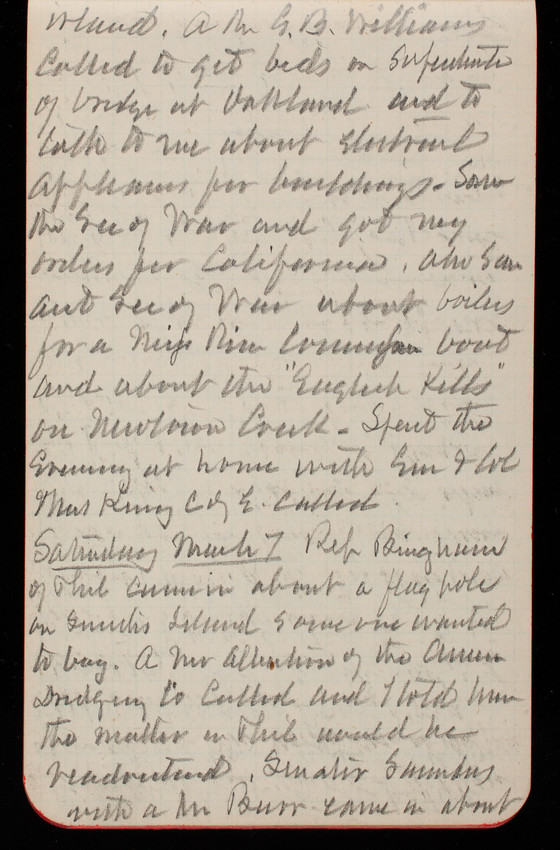 A Mr G. B. Williams
Called to get bids on
of bridge at Oakland and to
talk to me about Electrical
appliances for buildings. Saw
the Sec of War and got my
orders for California, also Saw
Sec of War about boilers
for a Miss River Commission boat
and about the "English Kills"
on Newtown Creek - Spent the
Evening at home with Em & Col
& Mrs King C of E. called.
Saturday March 7 Rep Bingham
of Phil came in about a flag pole
on Smiths Island Some one wanted
to buy. A Mr of the Amer
Dredging Co Called and I told him
the matter in Phil would be
readvertised. Senator
with a Mr Burr came in about